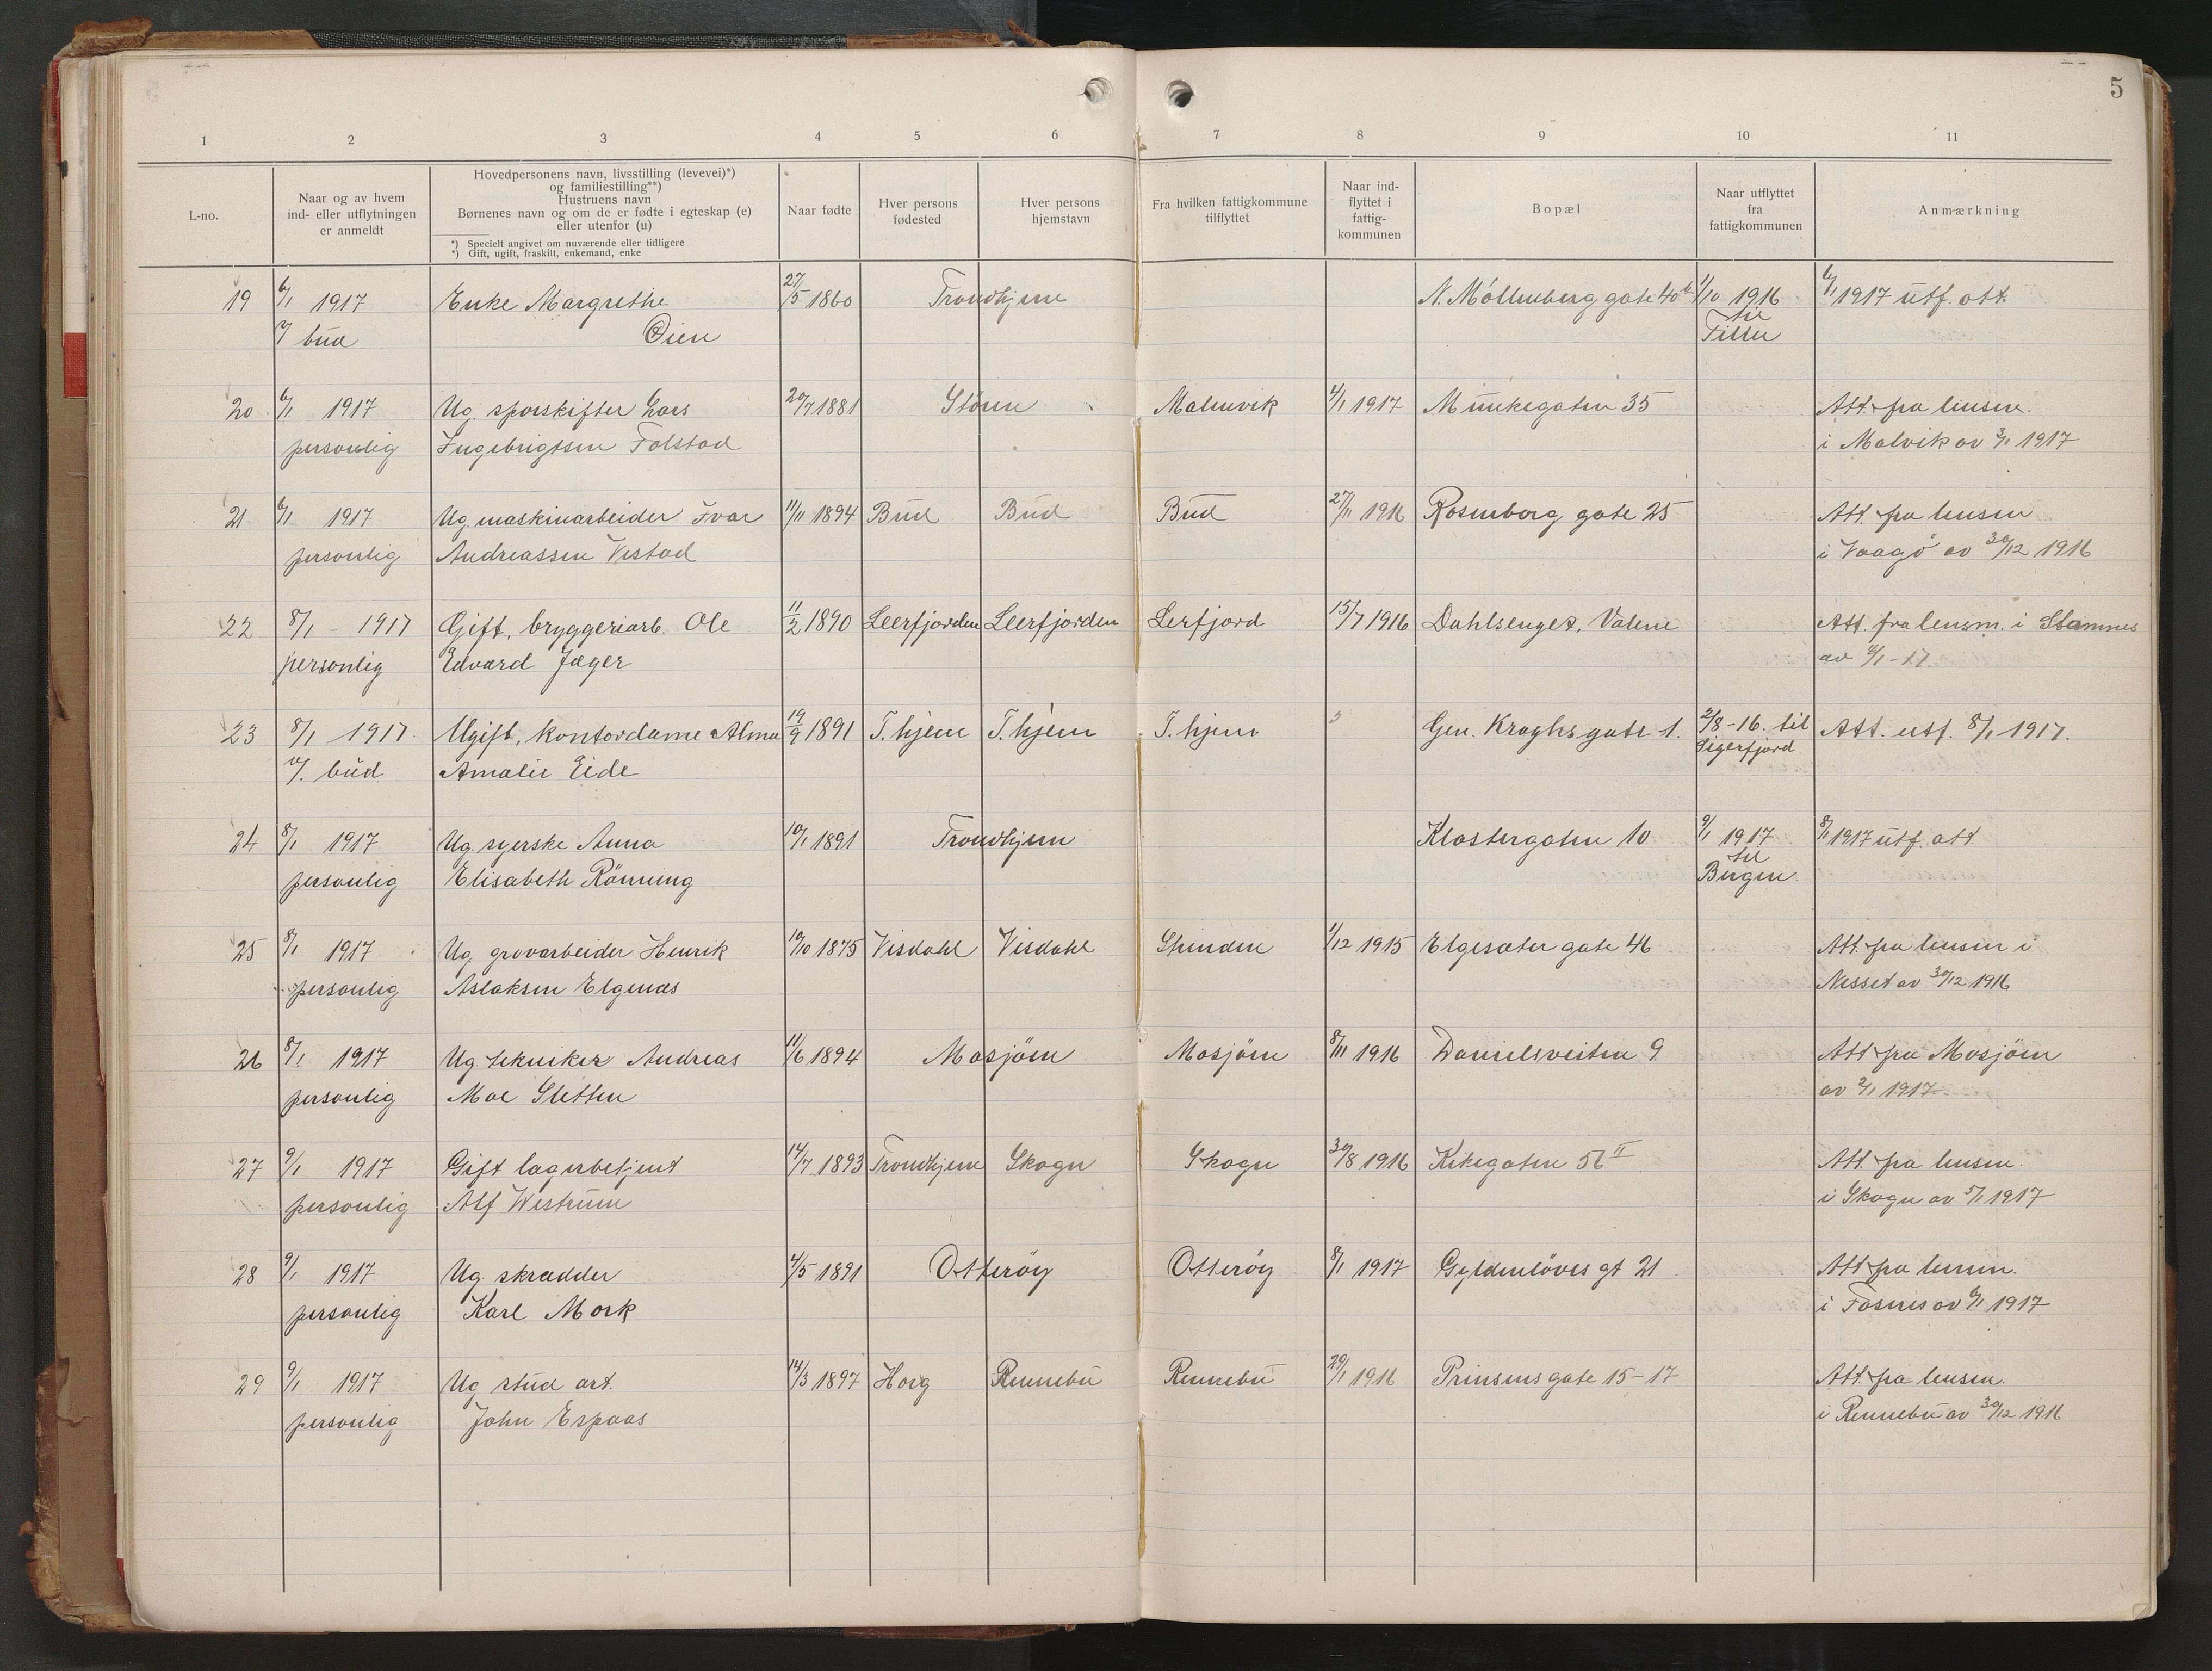 5
1 2 3 4 5 6 7 8 9 10 11
L-no.
Naar og av hvem
ind- eller utflytningen
er anmeldt
Hovedpersonens navn, livsstilling (levevei)*)
og familiestilling**)
Hustruens navn
Børnenes navn og om de er fødte i egteskap (e)
eller utenfor (u)
*) Specielt angivet om nuværende eller tidligere
*) Gift, ugift, fraskilt, enkemand, enke
Naar fødte
Hver persons
fødested
Hver persons
hjemstavn
Fra hvilken fattigkommune
tilflyttet
Naar ind-
flyttet i
fattig-
kommunen
Bopæl
Naar utflyttet
fra
fattigkommunen
Anmærkning
19 6/1 1917 Enke Margrethe 27/5 1860 Trondhjem N. Möllenberg gate 40b 1/10 1916 6/1 1917 utf. att.
v/ bud Öien til
Tiller
20 6/1 1917 Ug. sporskifter Lars 20/7 1881 Stören Malmvik 4/1 1917 Munkegaten 35 Att. fra lensm.
personlig Ingebrigtsen Folstad i Malvik av 3/1 1917
21 6/1 1917 Ug. maskinarbeider Ivar 11/11 1894 Bud Bud Bud 27/11 1916 Rosenborg gate 25 Att. fra lensm
personlig Andreassen Vestad i Vaagö av 30/12 1916
22 8/1 - 1917 Gift, bryggeriarb. Ole 11/2 1890 Leerfjorden Leerfjorden Lerfjord 15/7 1916 Dahlsenget, Valene Att. fra lensm. i Stamnes
personlig Edvard Jæger av 4/1 - 17.
23 8/1 - 1917. Ugift, kontordame Alma 19/9 1891 T.hjem T.hjem T.hjem Gen. Kraghs gate 1. 2/8 - 16. til Att. utf. 8/1 1917.
v/. bud Amalie Eide Sigerfjord
24 8/1 1917 Ug. syerske Anna 10/1 1891 Trondhjem Klostergaten 10 9/1 1917 8/1 1917 utf. att.
personlig Elisabeth Rönning til
Bergen
25 8/1 1917 Ug. grovarbeider Henrik 10/10 1875 Visdahl Visdahl Strinden 1/12 1915 Elgesæter gate 46 Att. fra lensm i
personlig Aslaksen Elgenæs Nesset av 30/12 1916
26 8/1 1917 Ug. tekniker Andreas 11/6 1894 Mosjöen Mosjöen 8/11 1916 Danielsveiten 9 Att fra Mosjöen
personlig Moe Sletten av 2/1 1917
27 9/1 1917 Gift lagerbetjent 14/7 1893 Trondhjem Skogn Skogn 30/8 1916 Kikegaten 56 II Att. fra lensm.
personlig Alf Westrum i Skogn av 5/1 1917
28 9/1 1917 Ug. skrædder 4/5 1891 Otteröy Otteröy 8/1 1917 Gyldenlöves gt 21 Att fra lensm.
personlig Karl Mork i Fosnes av 6/1 1917
29 9/1 1917 Ug stud art. 14/3 1897 Horg Rennebu Rennebu 29/1 1916 Prinsens gate 15-17 Att. fra lensm.
personlig John Espaas i Rennebu av 30/12 1916